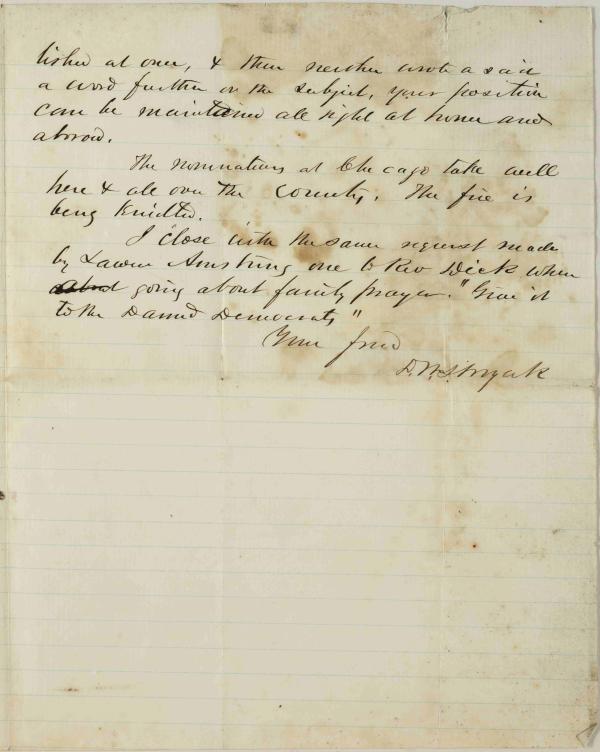 lished at once, & then neither wrote or said
a word further on the subject, your position
can be maintained all right at home and
abroad.
The nominations at Chicago take well
here & all over the County. The fire is
being kindled.
I close with the same request made
by Armstrong one to Rev Dick when
about going about family prayer. "Give it
to the Damed Democrats"
Your friend